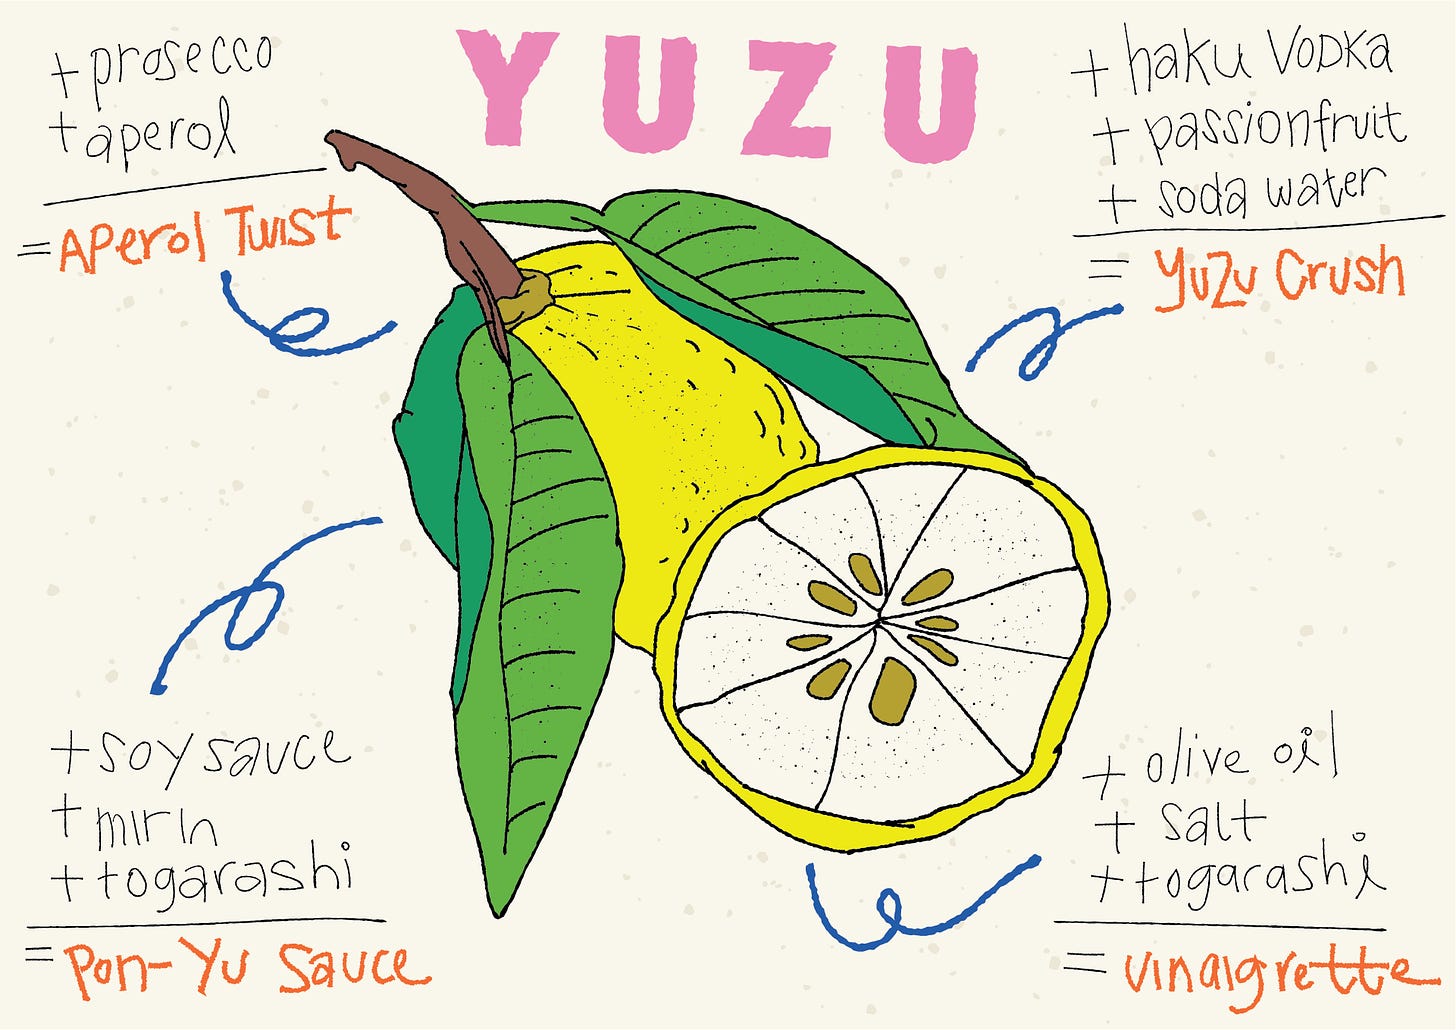 YUZU
+ prosecco
+ aperol
= Aperol Twist
+ haku Vodka
+ passionfruit
+ soda water
= Yuzu Crush
+ soy sauce
+ mirin
+ togarashi
= Pon-Yu Sauce
+ olive oil
+ salt
+ togarashi
= vinaigrette